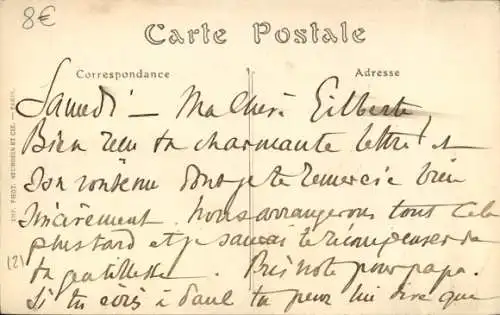 8€
Carte Postale
Correspondance
Adresse
Samedi — Ma chère Gilberte
Bien reçu ta charmante lettre et
son contenu dont je te remercie bien
sincèrement. Nous arrangerons tout cela
plus tard et je saurai te récompenser de
ta gentillesse. Pris note pour papa.
Si tu écris à Paul tu peux lui dire que
(2)
IMP. PHOT. NEURDEIN ET CIE. — PARIS.